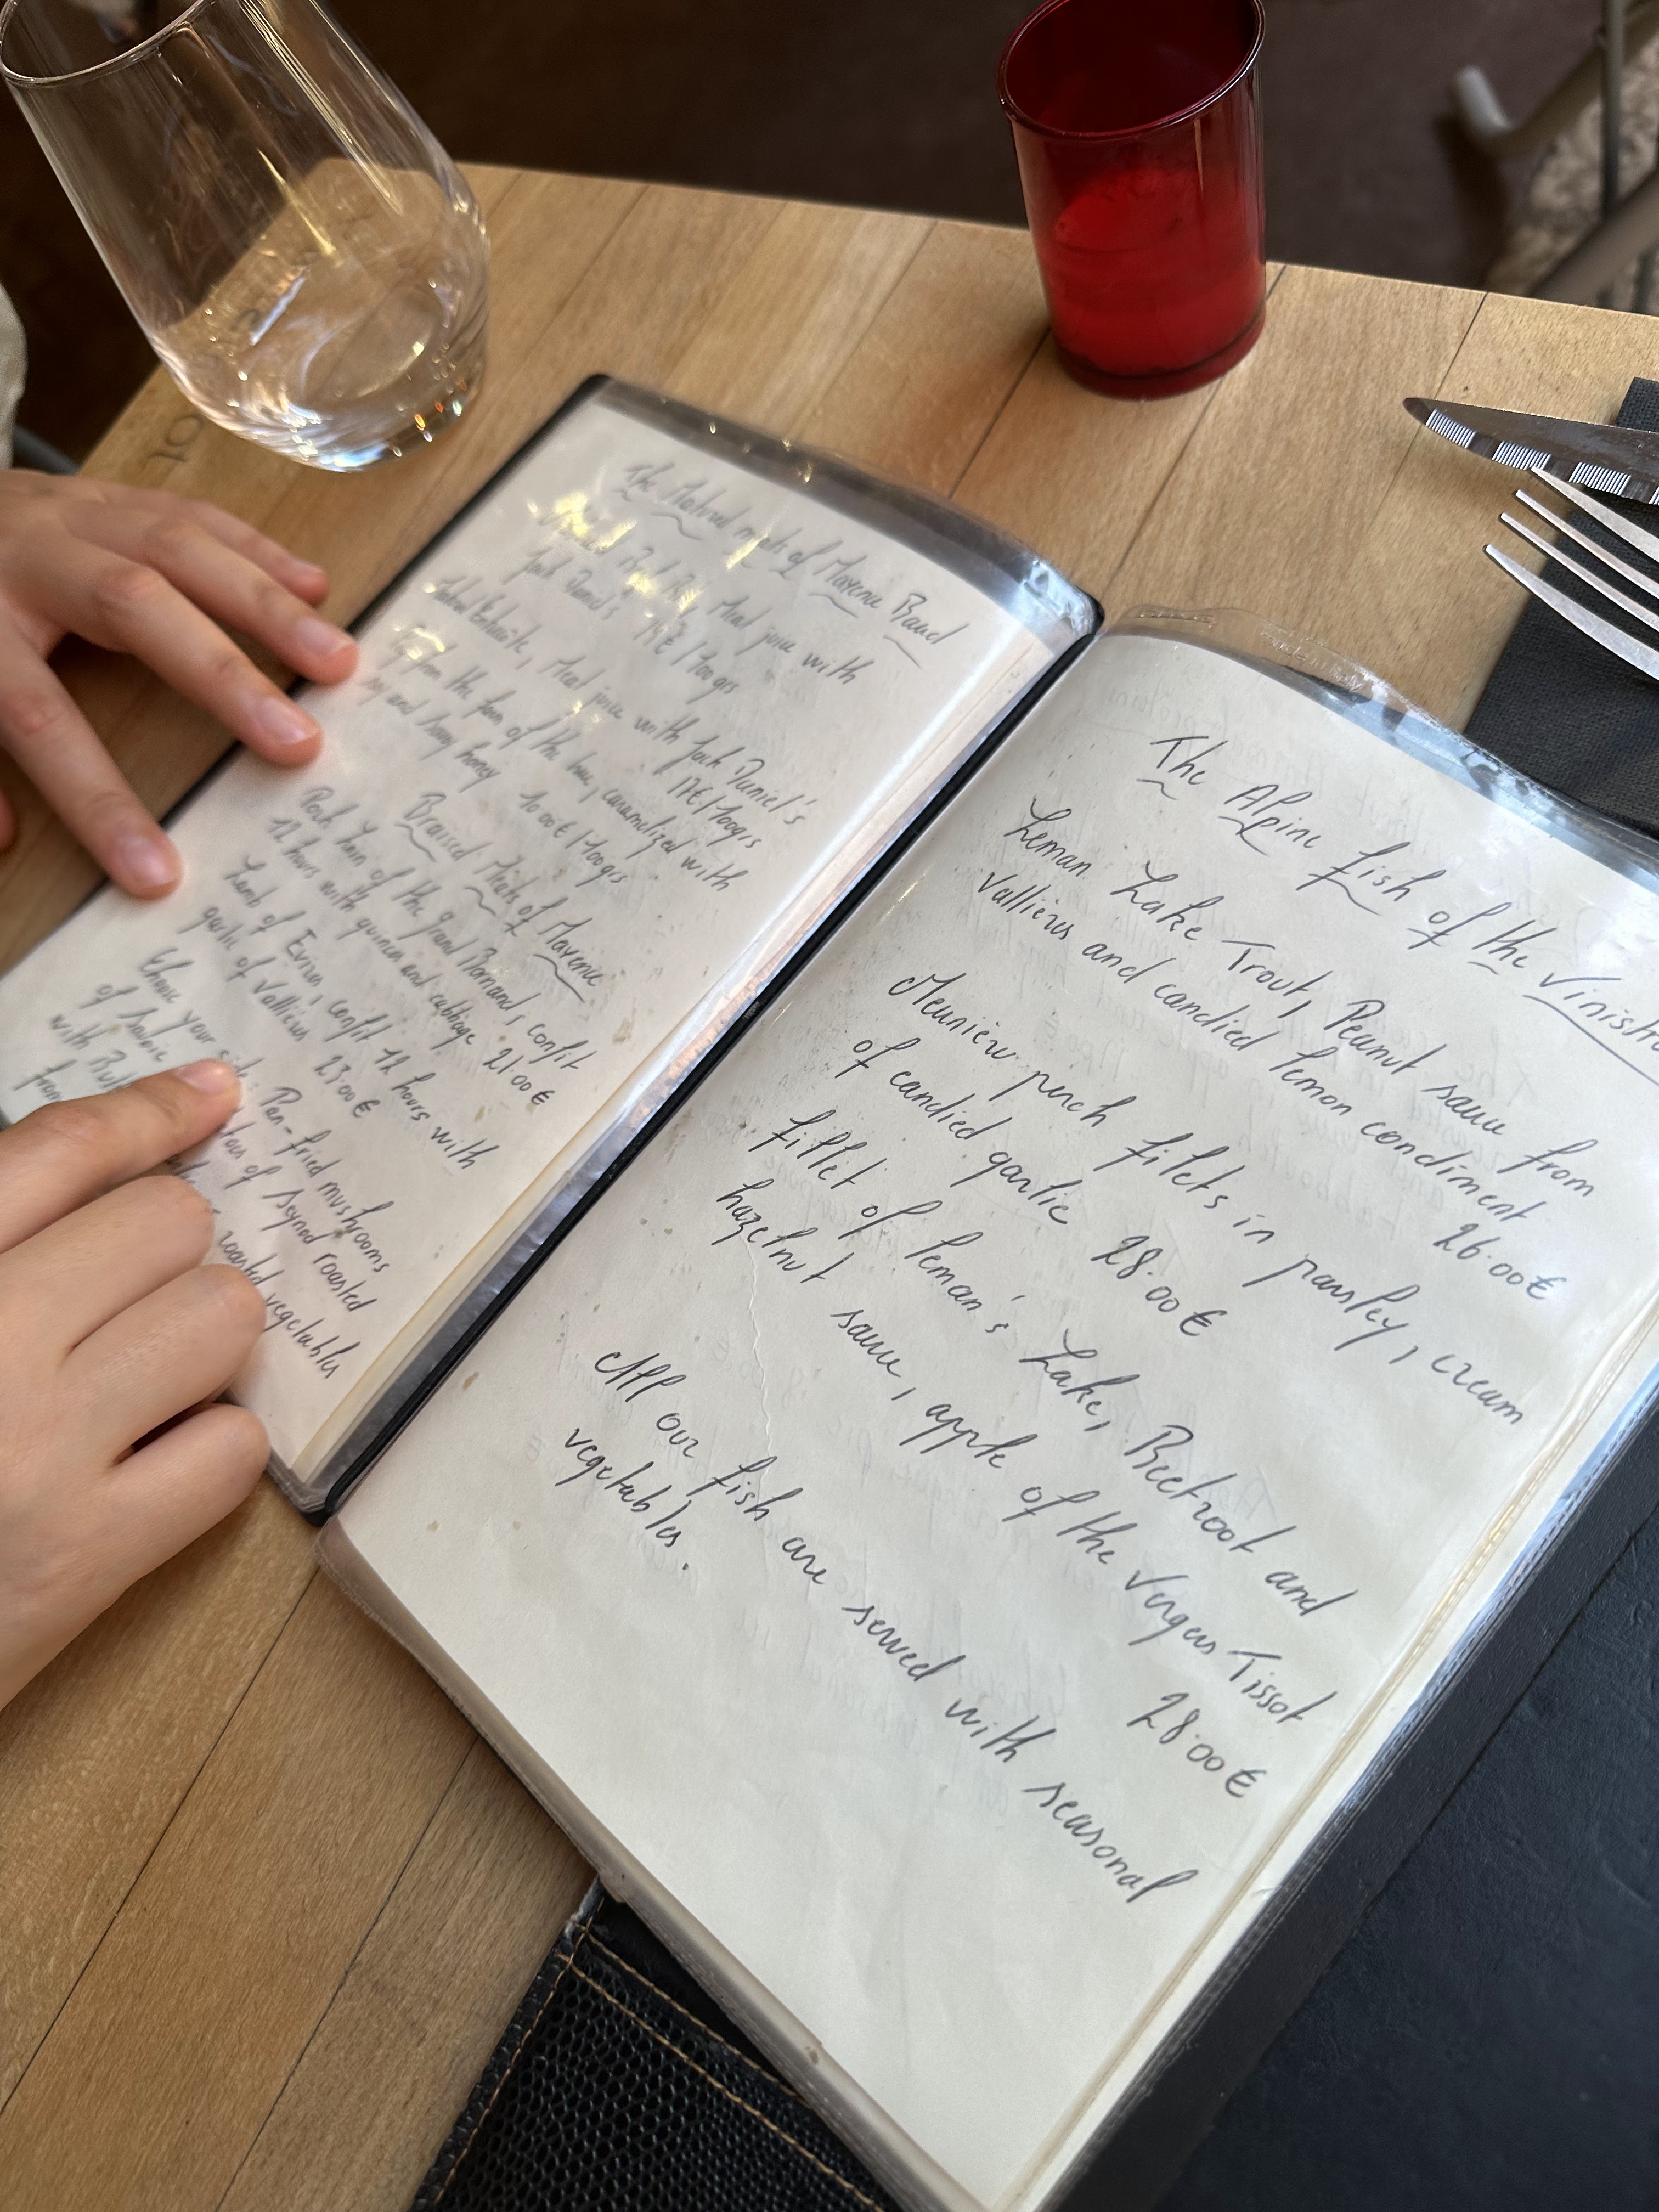 The Matured meats of Maxence Baud
Rib, Meat juice with
Jack Daniel's 19€/100grs
, Meat juice with Jack Daniel's
17€/100grs
from the farm of the , caramelized with
soy and honey 10.00€/100grs
Braised Meats of Maxence
Pork loin of the grand Bornand, confit
12 hours with quinces and cabbage 21.00€
Lamb of , confit 12 hours with
garlic of Vallières 23.00€
Choose your side: Pan-fried mushrooms
of of Seynod roasted
with roasted vegetables
from
The Alpine fish of the
Leman Lake Trout, Peanut sauce from
Vallières and candied lemon condiment
26.00€
Meunière perch filets in parsley, cream
of candied garlic 28.00€
fillet of leman's Lake, Beetroot and
hazelnut sauce, apple of the Vergers Tissot
28.00€
All our fish are served with seasonal
vegetables.